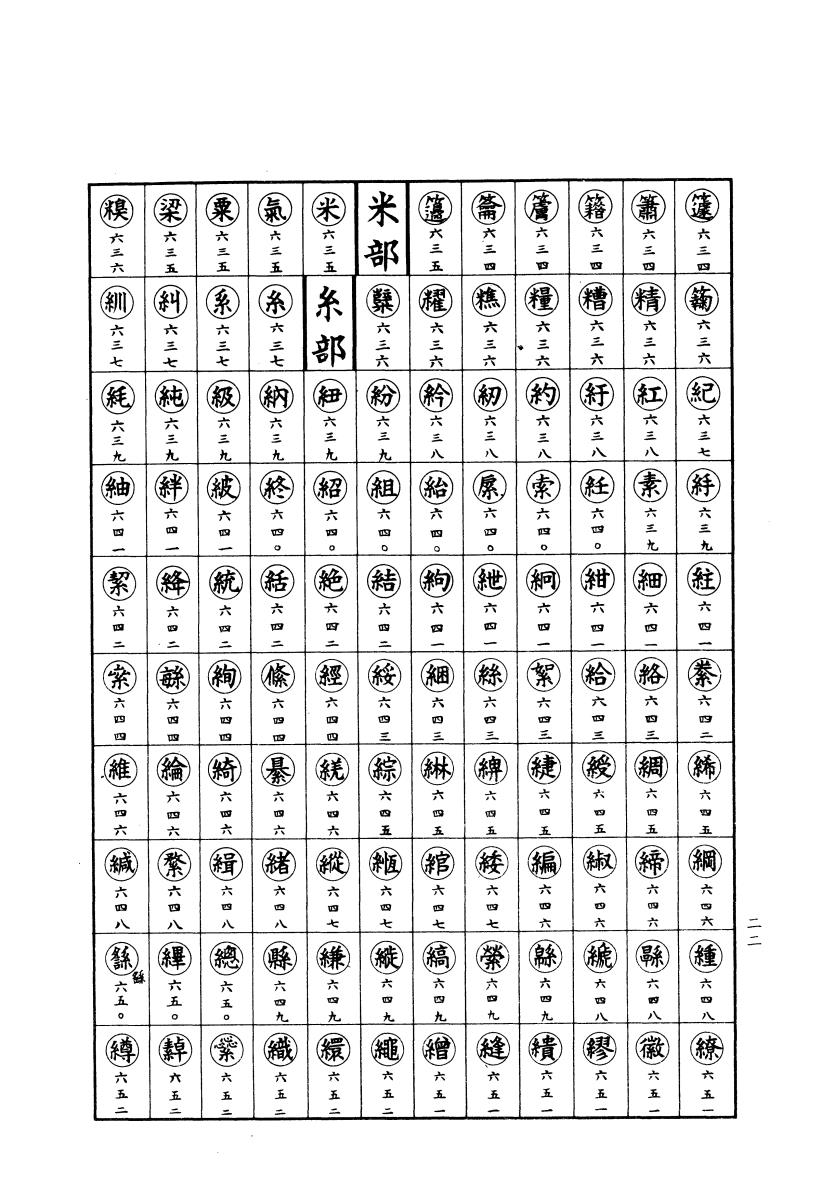 籧六三四 簫六三四 籍六三四 籚六三四 籥六三四 籩六三五 米部 米六三五 氣六三五 粟六三五 梁六三五 糗六三六
䉀六三六 精六三六 糟六三六 糧六三六 糕六三六 糶六三六 糱六三六 糸部 糸六三七 系六三七 糾六三七 紃六三七
紀六三七 紅六三八 紆六三八 約六三八 紉六三八 紟六三八 紛六三九 紐六三九 納六三九 級六三九 純六三九 紕六三九
紓六三九 素六三九 紝六四〇 索六四〇 六四〇 紿六四〇 組六四〇 紹六四〇 終六四〇 紴六四一 絆六四一 紬六四一
紸六四一 細六四一 紺六四一 絅六四一 紲六四一 絇六四一 結六四二 絶六四二 絬六四二 統六四二 絳六四二 絜六四二
絭六四二 絡六四三 給六四三 絮六四三 絲六四三 綑六四三 綏六四三 經六四四 絛六四四 絢六四四 緐六四四 六四四
絺六四五 綢六四五 綬六四五 緁六四五 綼六四五 綝六四五 綜六四五 六四六 綦六四六 綺六四六 綸六四六 維六四六
綱六四六 締六四六 綍六四六 編六四六 緌六四七 綰六四七 緪六四七 縱六四七 緒六四八 緝六四八 六四八 緘六四八
緟六四八 縣六四八 六四八 緜六四九 縈六四九 縞六四九 縰六四九 縑六四九 縣六四九 總六五〇 縪六五〇 繇六五〇
繚六五一 徽六五一 繆六五一 繢六五一 縫六五一 繒六五一 繩六五二 繯六五二 織六五二 六五二 六五二 繜六五二
二二